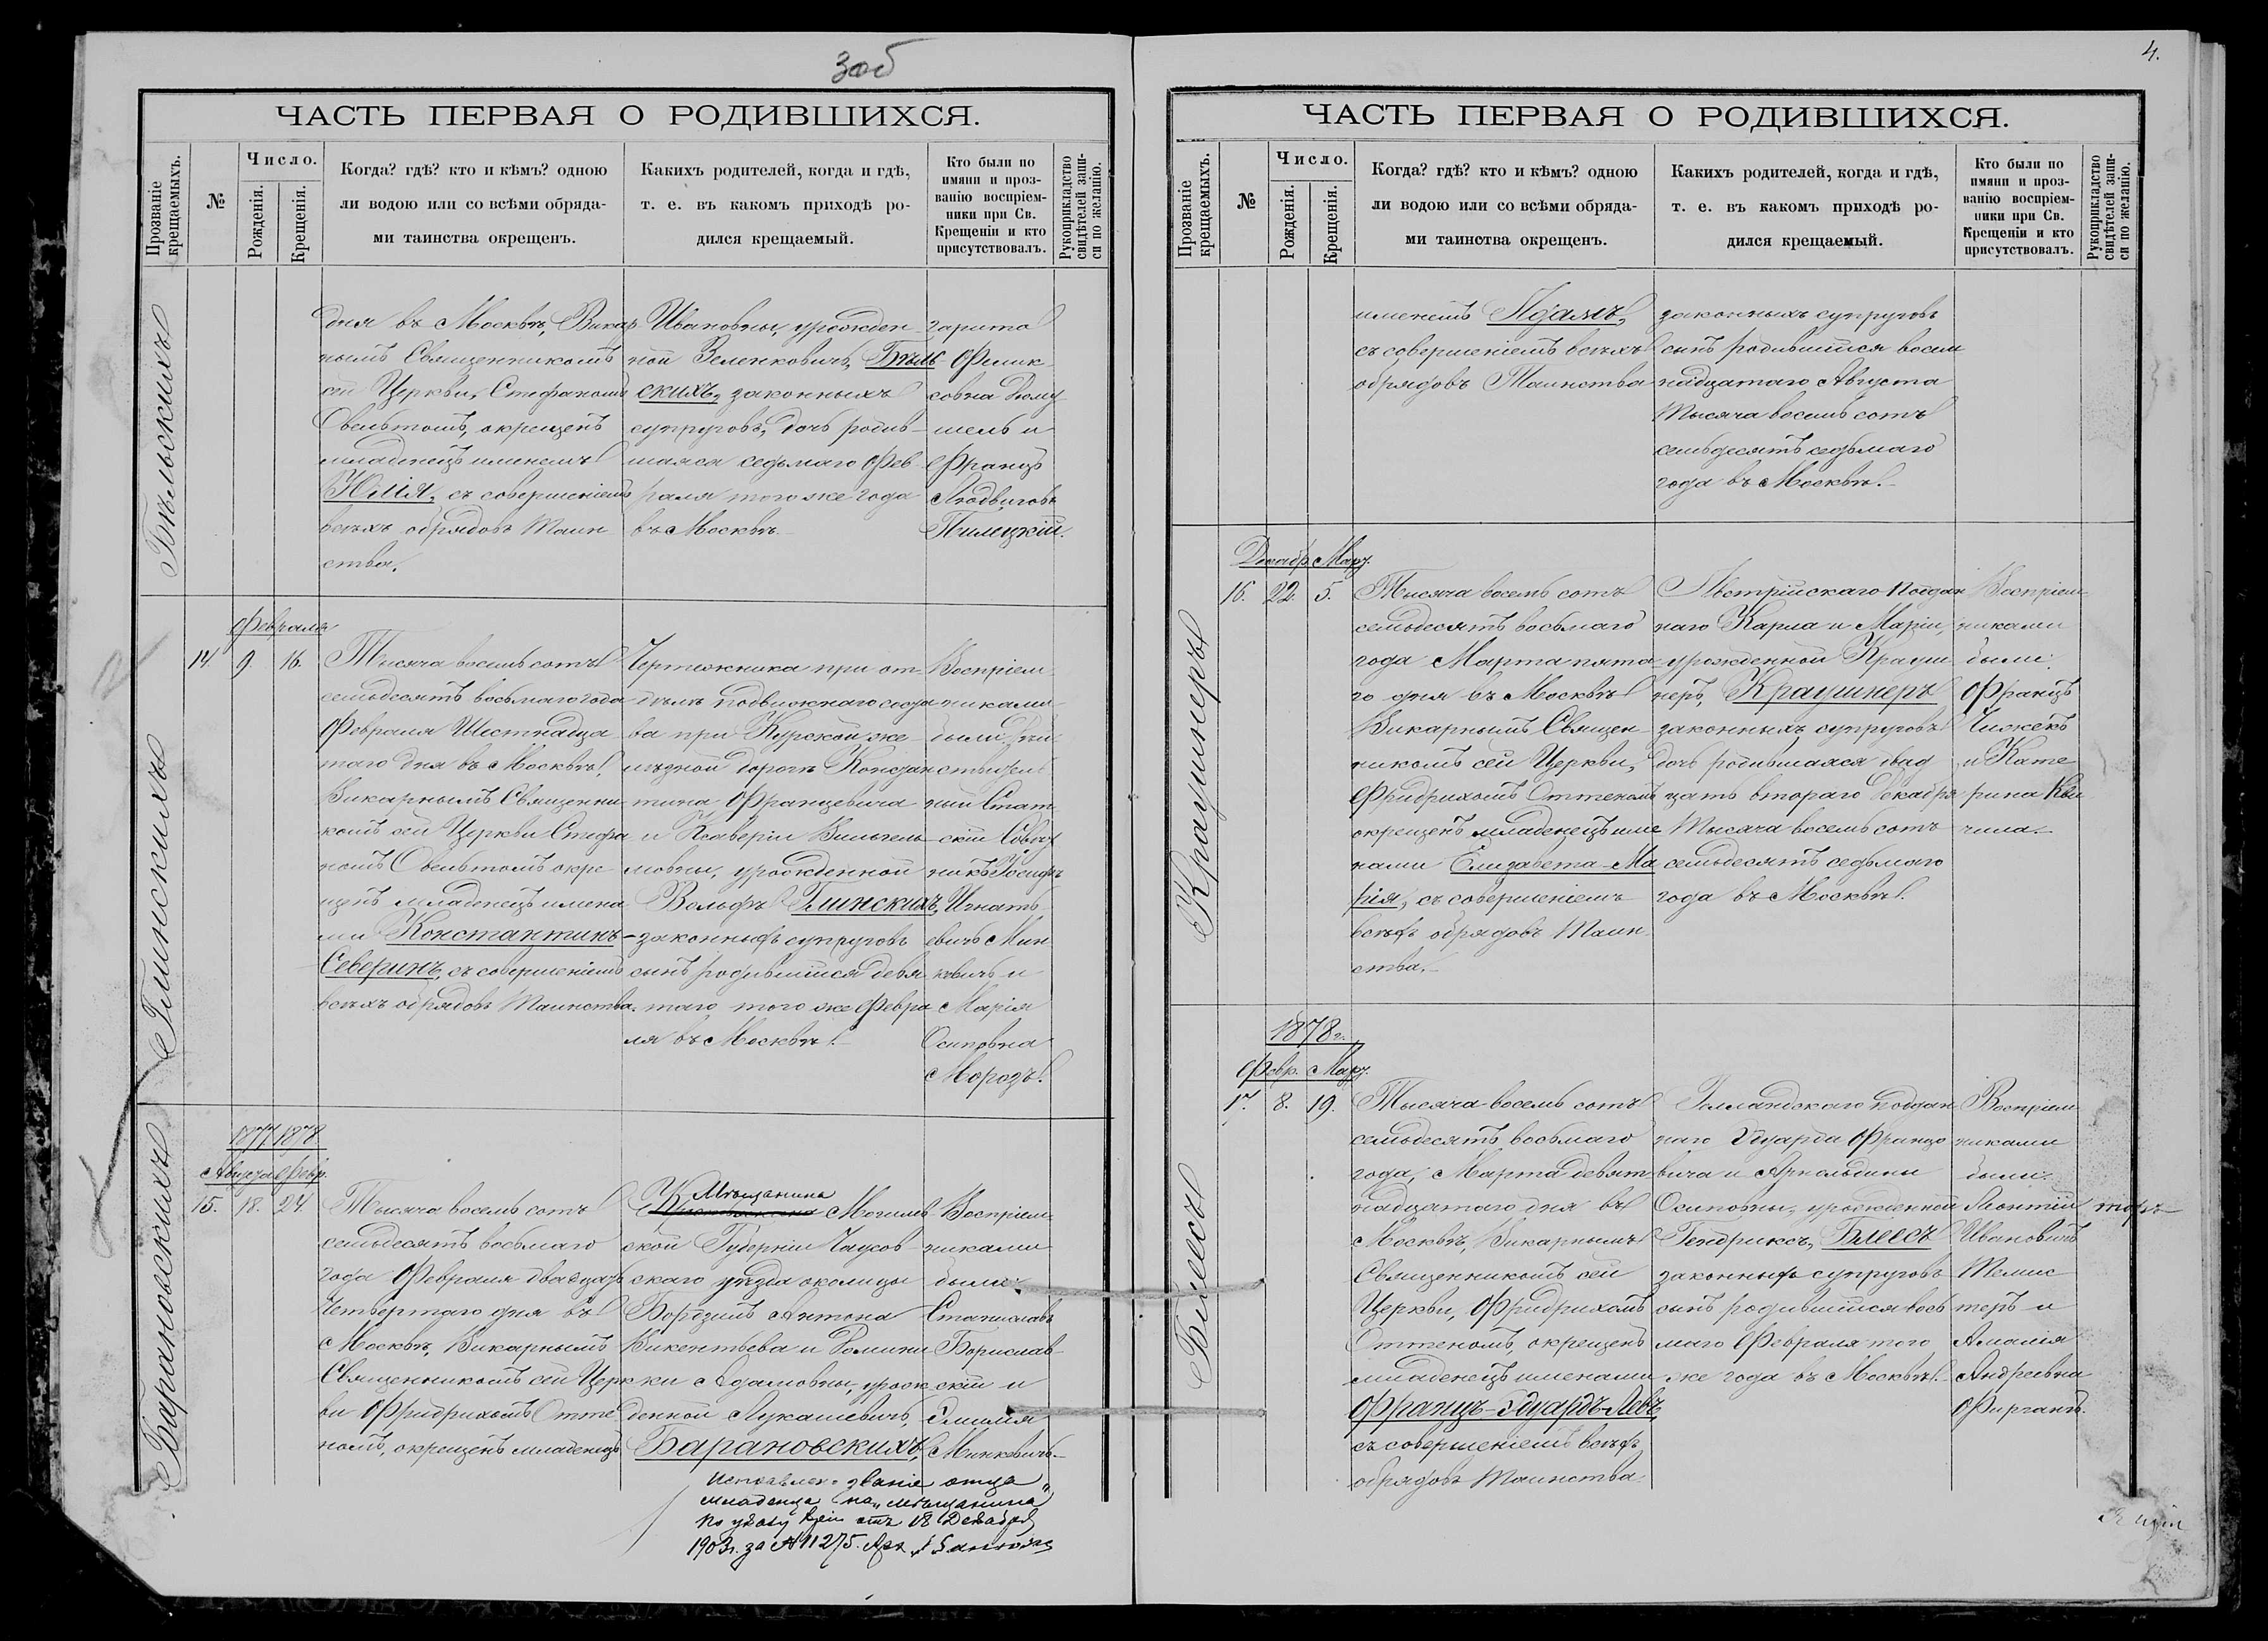 3об
ЧАСТЬ ПЕРВАЯ О РОДИВШИХСЯ.
Прозваніе крещаемыхъ.
№
Число.
Рожденія.
Крещенія.
Когда? гдѣ? кто и кѣмъ? одною
ли водою или со всѣми обряда-
ми таинства окрещенъ.
Какихъ родителей, когда и гдѣ,
т. е. въ какомъ приходѣ ро-
дился крещаемый.
Кто были по
имяни и проз-
ванію воспріем-
ники при Св.
Крещеніи и кто
присутствовалъ.
Рукоприкладство
свидѣтелей запи-
си по желанію.
Бѣльскихъ
дня въ Москвѣ, Викар
нымъ Священникомъ
сей Церкви, Стефаномъ
Овельтомъ, окрещенъ
младенецъ именемъ
Юлія, съ совершеніемъ
всѣхъ обрядовъ Таин
ства.
Ивановны, урожден
ной Зеленковичъ, Бѣль
скихъ, законныхъ
супруговъ, дочь родив-
шаяся седьмаго Фев
раля того же года
въ Москвѣ.
гарита
Фелик
совна
шель и
Францъ
Людвиговъ
Пилецкій.
Глинскихъ
Февраля
14. 9. 16.
Тысяча восемь сотъ
семьдесятъ восьмаго года
Февраля Шестнадца
таго дня въ Москвѣ,
Викарнымъ Священни
комъ сей Церкви Стефа
номъ Овельтомъ окре
щенъ младенецъ имена
ми Константинъ-
Северинъ, съ совершеніемъ
всѣхъ обрядовъ Таинства.
Чертежника при от-
дѣлѣ подвижнаго соста
ва при Курской же
лѣзной дорогѣ Констан
тина Францевича
и Ксаверіи Вильгель
мовны, урожденной
Вольфъ Глинскихъ,
законныхъ супруговъ
сынъ родившійся девя
таго того же Февра
ля въ Москвѣ.
Воспріем
никами
были: Дѣй
ствитель
ный Стат
скій Совѣт
никъ Іосифъ
Игнать
евичъ Мин
кевичъ и
Марія
Осиповна
Морозъ.
Барановскихъ
1877 1878
Августа Февр.
15. 18. 24.
Тысяча восемь сотъ
семьдесятъ восьмаго
года Февраля двадцать
четвертаго дня въ
Москвѣ, Викарнымъ
Священникомъ сей Церк
ви Фридрихомъ Отте
номъ, окрещенъ младенецъ
Мѣщанина
Могилев
ской Губерніи Чаусов
скаго уѣзда околицы
Антона
Викентьева и Домини
ки Адамовны, урож
денной Лукашевичъ,
Барановскихъ,
Воспріем
никами
были:
Станиславъ
Бориславъ
скій и
Эмилія
Минкевичъ.
Исправлен. званіе отца
младенца на „мѣщанина"
по указу отъ 18 Декабря
1903г. за № 11275.
4.
ЧАСТЬ ПЕРВАЯ О РОДИВШИХСЯ.
Прозваніе крещаемыхъ.
№
Число.
Рожденія.
Крещенія.
Когда? гдѣ? кто и кѣмъ? одною
ли водою или со всѣми обряда-
ми таинства окрещенъ.
Какихъ родителей, когда и гдѣ,
т. е. въ какомъ приходѣ ро-
дился крещаемый.
Кто были по
имяни и проз-
ванію воспріем-
ники при Св.
Крещеніи и кто
присутствовалъ.
Рукоприкладство
свидѣтелей запи-
си по желанію.
именемъ Адамъ,
съ совершеніемъ всѣхъ
обрядовъ Таинства
законныхъ супруговъ
сынъ родившійся восем
надцатаго Августа
Тысяча восемь сотъ
семьдесятъ седьмаго
года въ Москвѣ.
Краушнеръ
Декабр. Мар.
16. 22. 5.
Тысяча восемь сотъ
семьдесятъ восьмаго
года Марта пята
го дня въ Москвѣ
Викарнымъ Священ-
никомъ сей Церкви,
Фридрихомъ Оттеномъ
окрещенъ младенецъ име
нами Елизавета-Ма
рія, съ совершеніемъ
всѣхъ обрядовъ Таин
ства.
Австрійскаго поддан
наго Карла и Маріи,
урожденной Крауш
неръ, Краушнеръ
законныхъ супруговъ
дочь родившаяся двад
цать втораго Декабря
Тысяча восемь сотъ
семьдесятъ седьмаго
года въ Москвѣ.
Воспріем-
никами
были:
Францъ
Чижекъ
и Кате
рина
Блеесъ
1878 г.
Февр. Мар.
17. 8. 19.
Тысяча восемь сотъ
семьдесятъ восьмаго
года, Марта девят
надцатаго дня въ
Москвѣ, Викарнымъ
Священникомъ сей
Церкви, Фридрихомъ
Оттеномъ, окрещенъ
младенецъ именами
Францъ-Эдуардъ-Левъ,
съ совершеніемъ всѣхъ
обрядовъ Таинства.
Голландскаго поддан
наго Эдуарда Францо
вича и Арнольдины
Осиповны, урожденной
Гендриксъ, Блеесъ
законныхъ супруговъ
сынъ родившійся вось
маго Февраля того
же года въ Москвѣ.
Воспріем
никами
были:
Леонтій
Ивановичъ
Темис
теръ и
Амалія
Андреевна
Фирганъ.